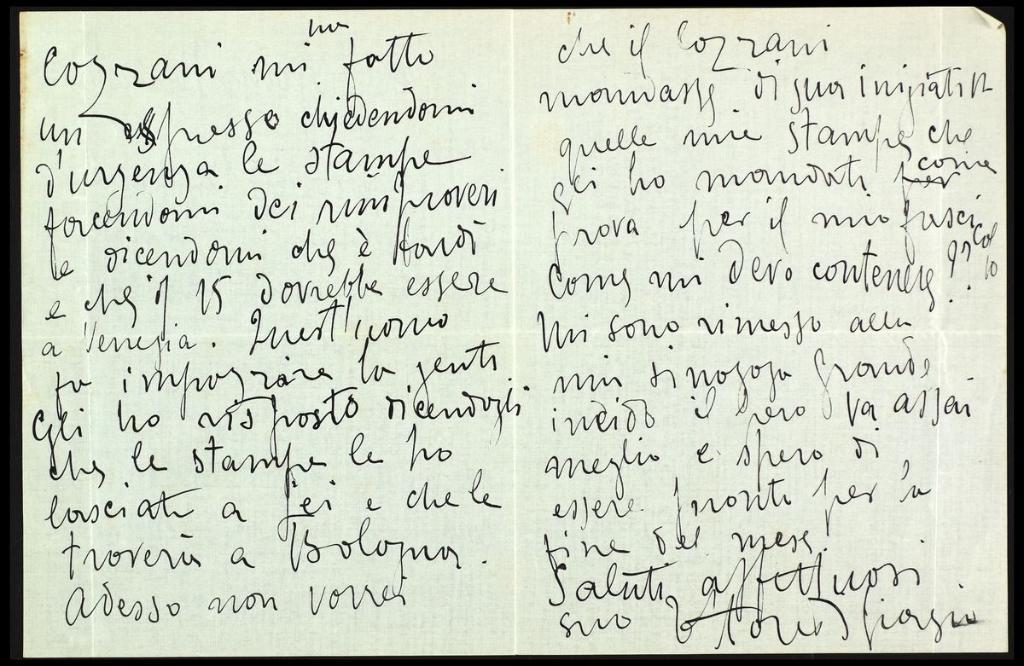 Cozzani mi ha fatto
un espresso chiedendomi
d'urgenza le stampe
facendomi dei rimproveri
e dicendomi che è tardi
e che il 15 dovrebbe essere
a Venezia. Quest'uomo
fa impazzire la gente
Gli ho risposto dicendogli
che le stampe le ho
lasciate a Lei e che le
troverà a Bologna.
Adesso non vorrei
che il Cozzani
mandasse di sua iniziativa
quelle mie stampe che
gli ho mandati per come
prova per il mio fasci
colo
Come mi devo contenere??
Mi sono rimesso alla
mia sinagoga grande
incido il pero va assai
meglio e spero di
essere pronto per la
fine del mese.
Saluti affettuosi.
suo Giorgio